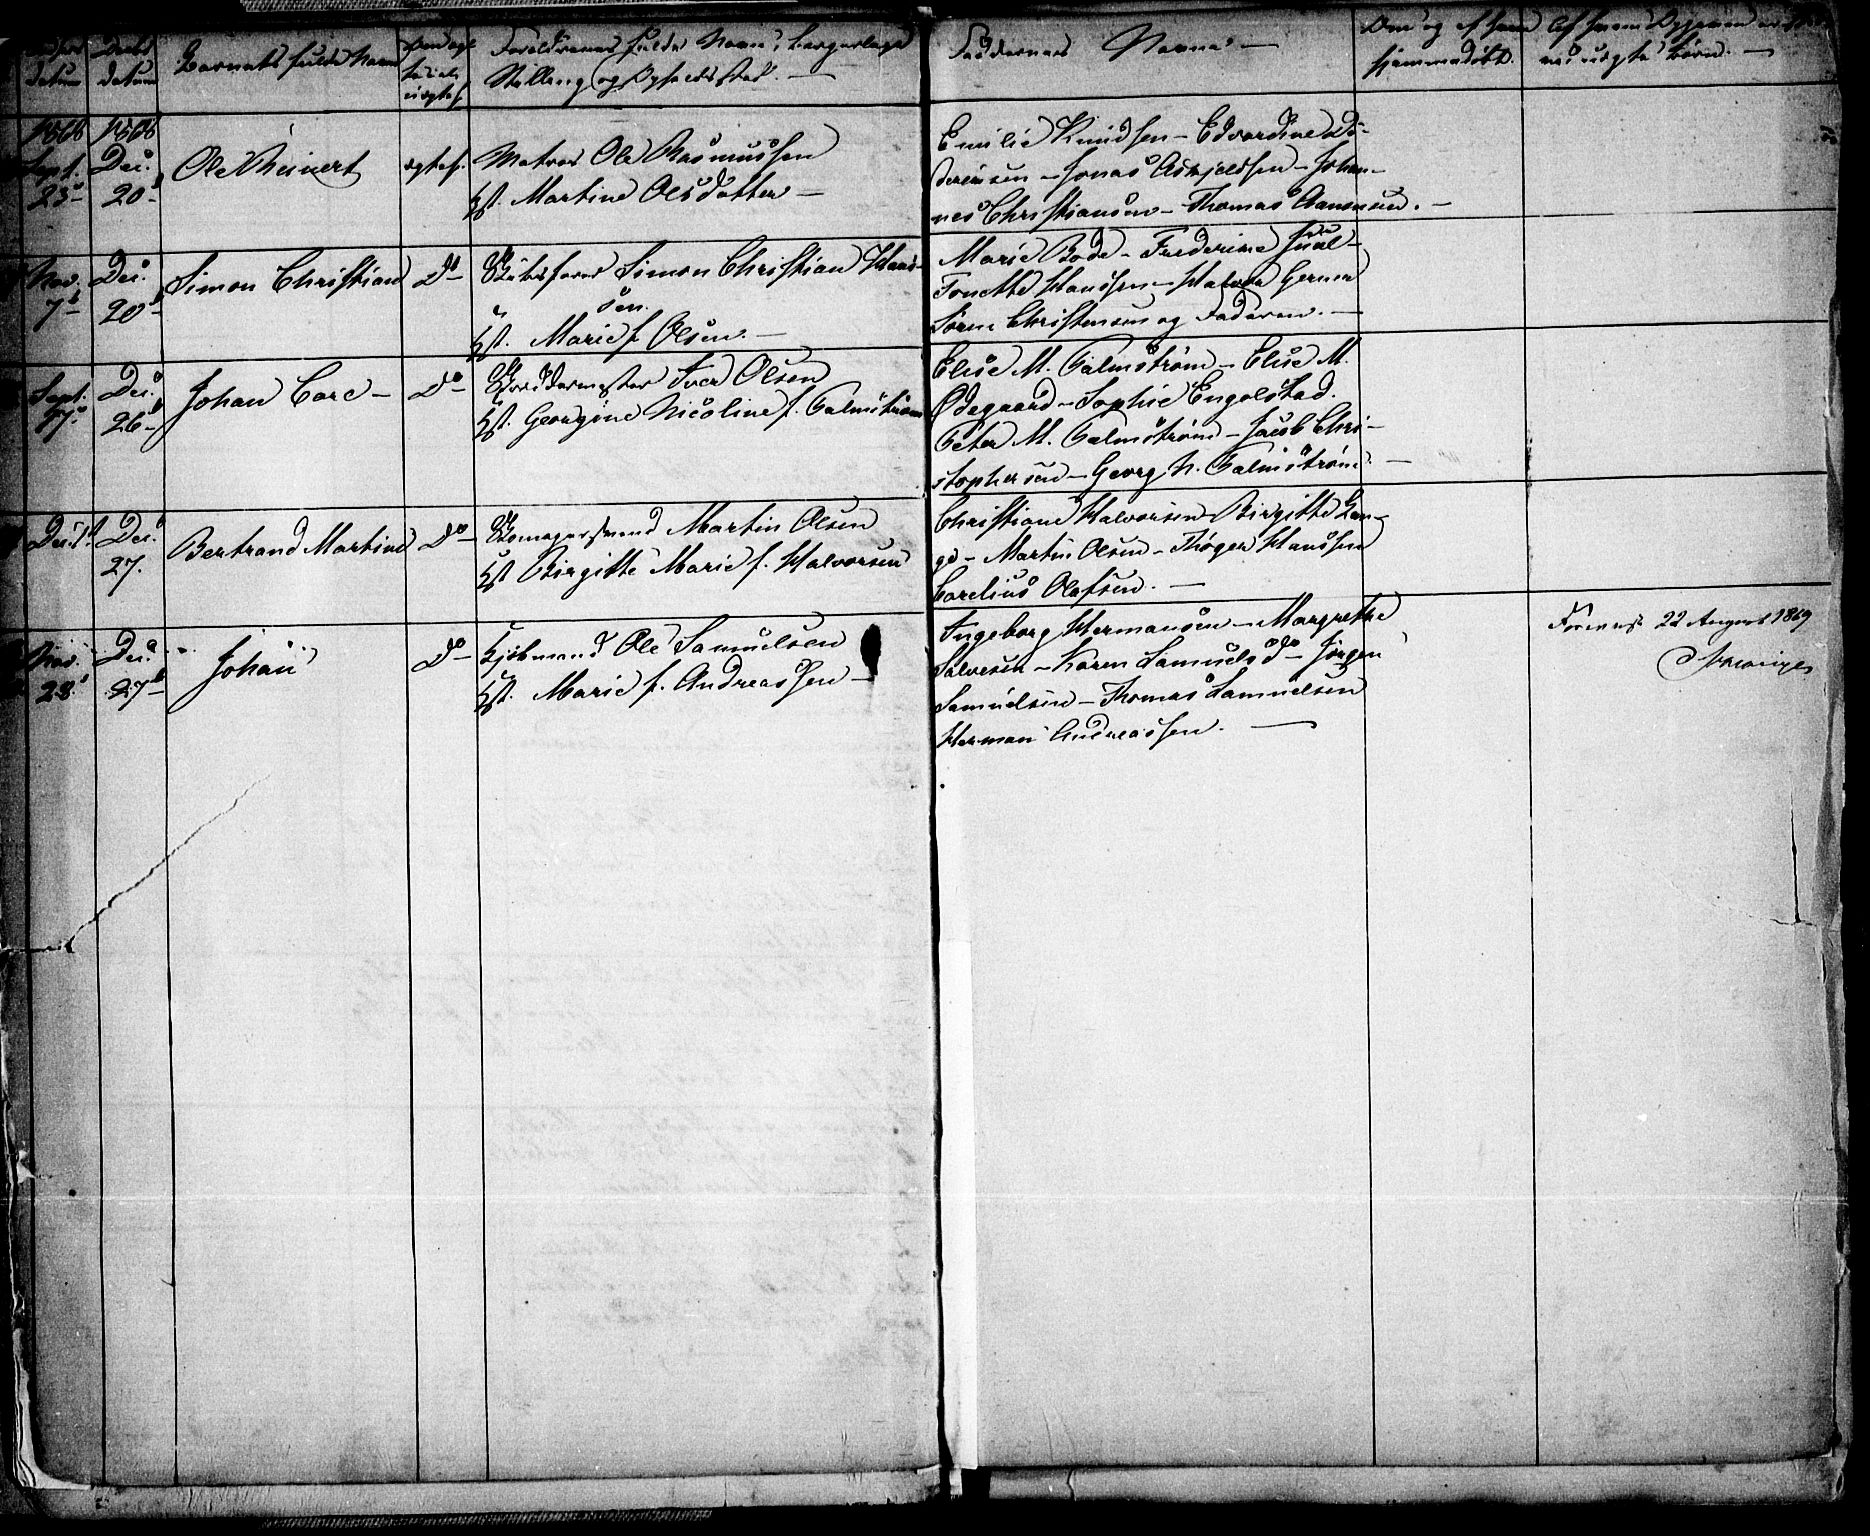 datum
Daabs
datum
Barnets fulde Navn
Om ægte
eller
uægte f.
Forældrenes fulde Navne, borgerlige
Stilling og Opholdssted. —
Faddernes Navne —
Om og af hvem
hjemmedøbt.
Af hvem Opgaven er
uægte Børn. —
1868
Sept.
25
1868
Dec.
20
Ole Reinert
ægtef.
Matros Ole Rasmussen
Hst. Martine Olsdatter —
Emilie Knudsen — Edvardine Di-
deriksen — Jonas Askjeldsen — Johan-
nes Christiansen — Thomas Aanonsen. —
Nov.
7
Dec.
20
Simon Christian
Do
Skibsfører Simon Christian Hans-
sen
Hst. Marie f. Olsen. —
Marie Bode — Frederikke Juul —
Tonette Hanssen — Halvor Gerner
Sören Christensen og Faderen. —
Sept.
17
Dec.
26
Johan Carl —
Do
Skræddermester Iver Olsen
Hst. Georgine Nicoline f. Palmström
Elise M. Palmström — Elise M.
Ødegaard — Sophie Engelstad.
Peter M. Palmström — Jacob Chri-
stophersen — Georg N. Palmström. —
Dec. 1
Dec.
27.
Bertrand Martine
Do
Skomagersvend Martin Olsen
Hst Birgitte Marie f. Halvorsen
Christiane Halvorsen — Birgitte Lan-
ge — Martin Olsen — Thöger Hanssen
Carelius Olafsen. —
Nov.
28
Dec.
27
Johan
Do
Kjöbmand Ole Samuelsen
Hst. Marie f. Andreassen —
Ingeborg Hermansen — Margrethe
Salvesen — Karen Samuelsd — Jörgen
Samuelsen — Thomas Samuelsen
Herman Andreassen. —
22 August 1869